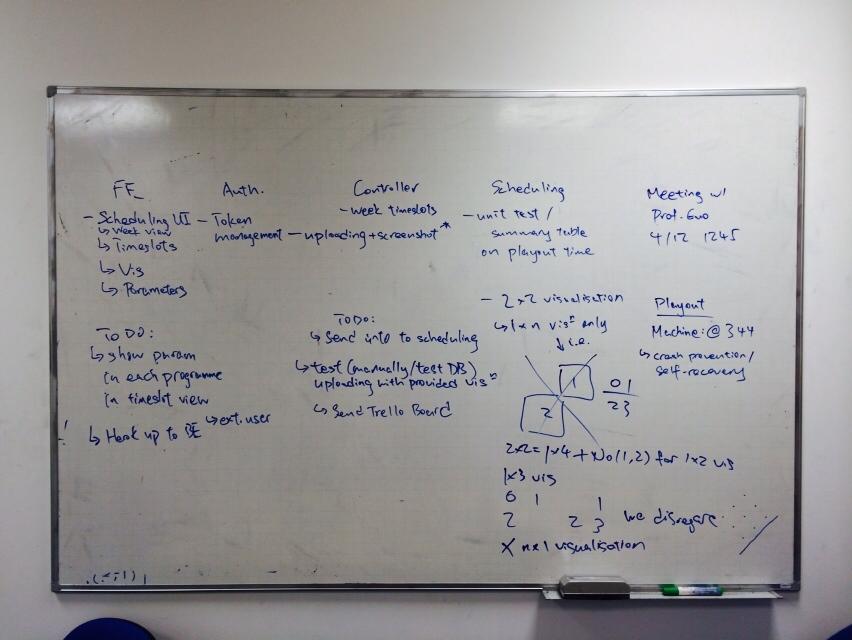 FE
- Scheduling UI
↳ week view
↳ Timeslots
↳ Vis
↳ Parameters
TO DO:
↳ show param
in each programme
in timeslot view
! ↳ Hook up to BE
↳ ext. user
Auth.
- Token
management
Controller
- week timeslots
- uploading + screenshot*
TODO:
↳ Send info to scheduling
↳ test (manually/test DB)
uploading with provided visⁿ
↳ Send Trello Board
Scheduling
- unit test /
summary table
on playout time
- 2×2 visualisation
↳ 1×n visⁿ only
↓ i.e.
1
2
0 1
2 3
2×2 = 1×4 + No(1,2) for 1×2 vis
1×3 vis
0 1 1
2 2 3 we disregard
X n×1 visualisation
Meeting w/
Prof. Guo
4/12 1245
Playout
Machine: @ 344
↳ crash prevention/
self-recovery